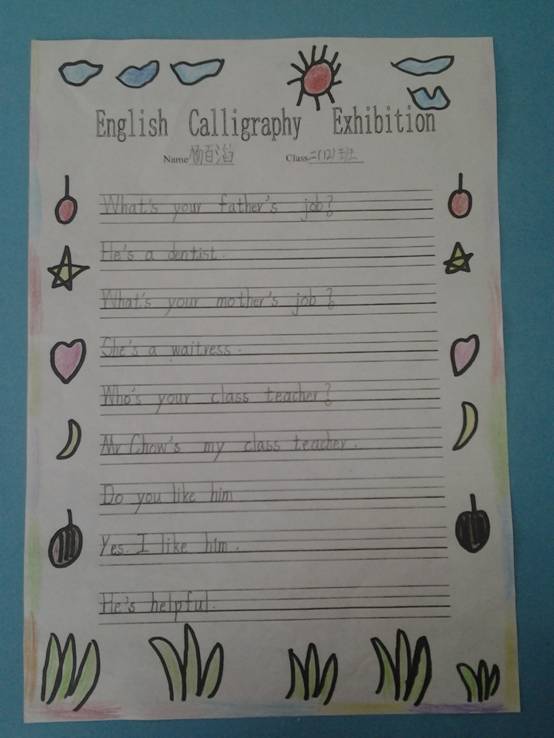 English Calligraphy Exhibition
Name 杨百 Class 二(12)班
What's your father's job?
He's a dentist.
What's your mother's job?
She's a waitress.
Who's your class teacher?
Mr Chow's my class teacher.
Do you like him
Yes. I like him.
He's helpful.